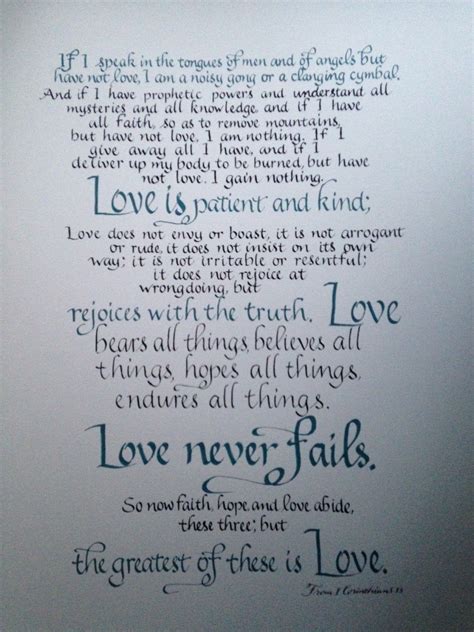 If I speak in the tongues of men and of angels but
have not love, I am a noisy gong or a clanging cymbal.
And if I have prophetic powers and understand all
mysteries and all knowledge, and if I have
all faith, so as to remove mountains,
but have not love, I am nothing. If I
give away all I have, and if I
deliver up my body to be burned, but have
not love, I gain nothing.
Love is patient and kind;
Love does not envy or boast, it is not arrogant
or rude, it does not insist on its own
way; it is not irritable or resentful;
it does not rejoice at
wrongdoing, but
rejoices with the truth. Love
bears all things, believes all
things, hopes all things,
endures all things.
Love never fails.
So now faith, hope, and love abide,
these three; but
the greatest of these is Love.
From 1 Corinthians 13